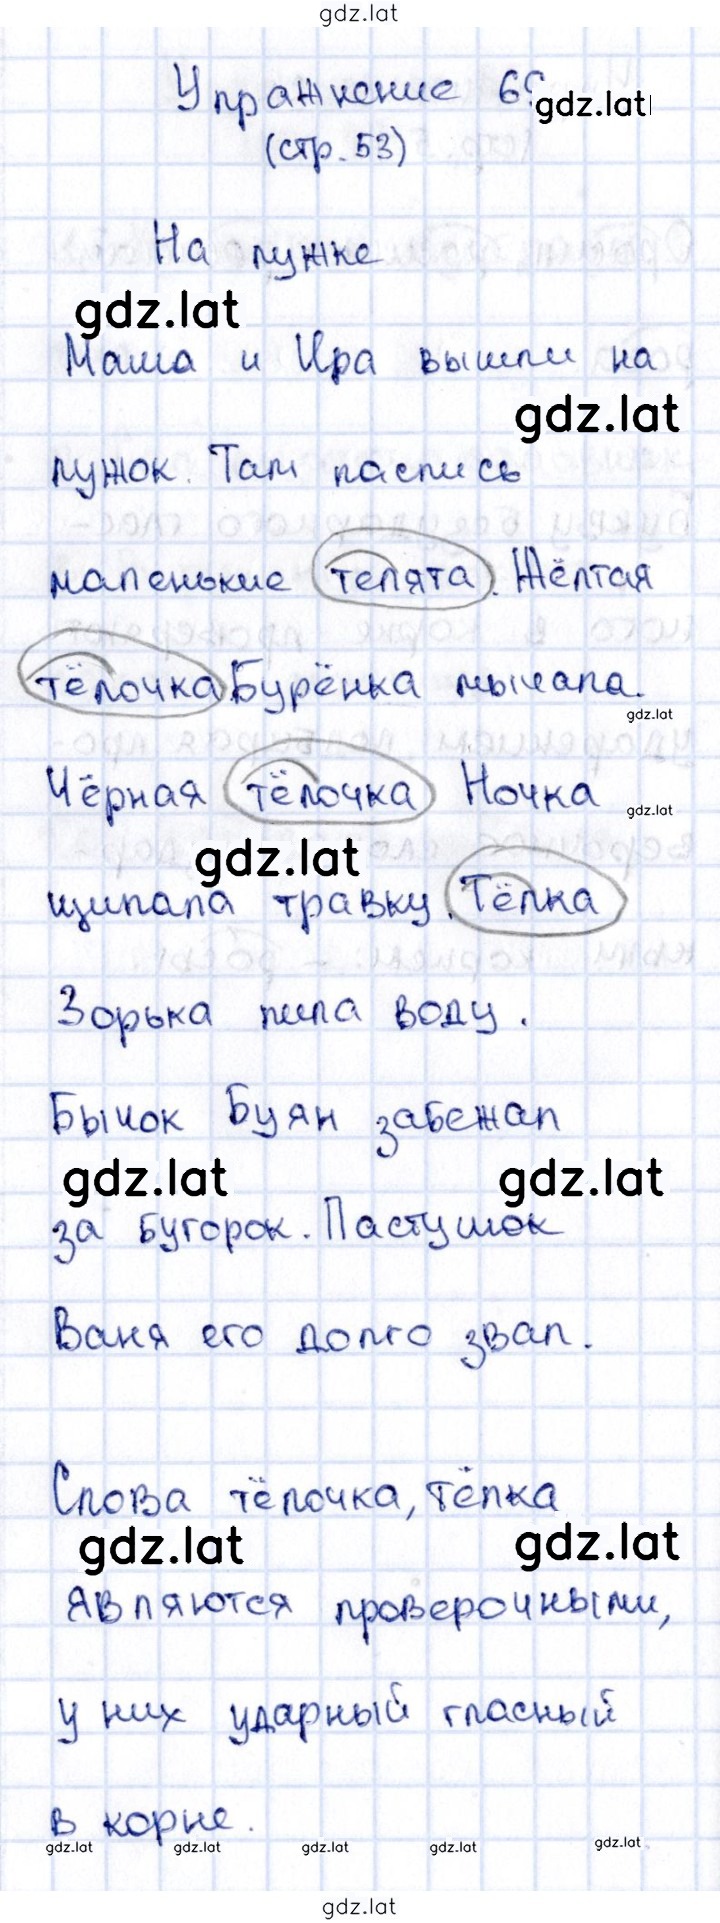 gdz.lat
Упражнение
gdz.lat
(стр. 53)
На лужке
gdz.lat
Маша и Ира вышли на
gdz.lat
лужок. Там паслись
маленькие телята. Жёлтая
тёлочка Бурёнка мычала.
gdz.lat
Чёрная тёлочка Ночка
gdz.lat
gdz.lat
щипала травку. Тёлка
Зорька пила воду.
Бычок Буян забежал
gdz.lat gdz.lat
за бугорок. Пастушок
Ваня его долго звал.
Слова тёлочка, тёлка
gdz.lat gdz.lat
являются проверочными,
у них ударный гласный
в корне.
gdz.lat gdz.lat gdz.lat gdz.lat gdz.lat
gdz.lat